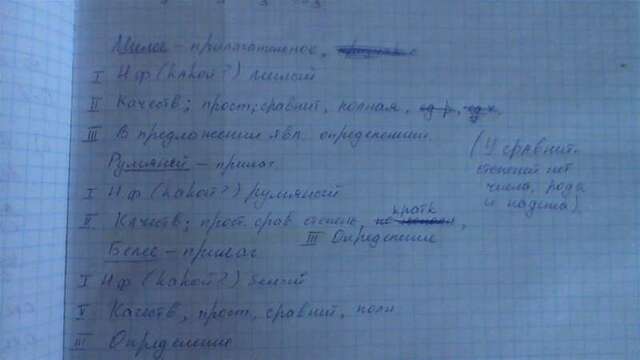 Милее – прилагательное,
I Н ф (какой?) милый
II Качеств; прост; сравнит, полная, ед р, ед ч,
III В предложении явл. определением.
(У сравнит. степеней нет числа, рода и падежа).
Румяней – прилаг.
I Н ф (какой?) румяный
II Качеств; прост. срав степень, кратк,
III Определение
Белее – прилаг
I Н ф (какой?) белый
V Качеств, прост, сравнит, полн
III Определение